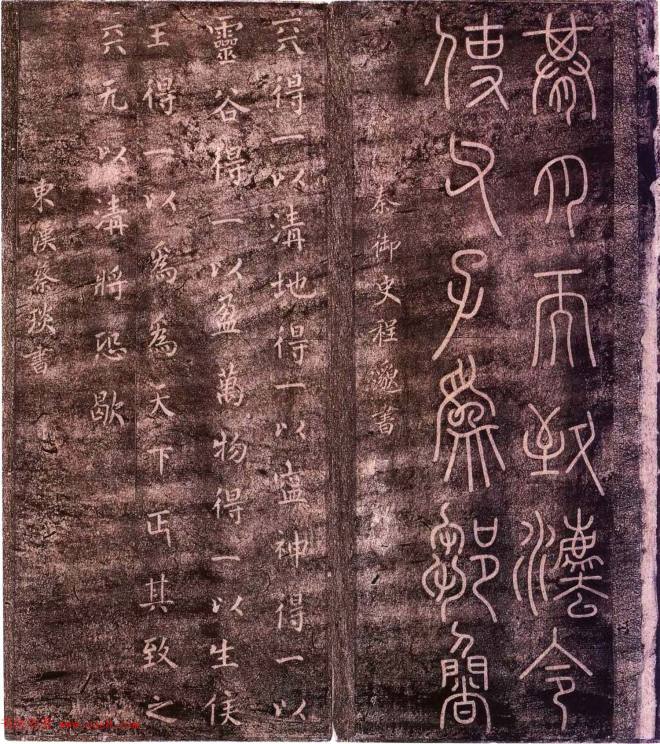 月而致灋令
使父子為
秦御史程邈書
天得一以清地得一以寧神得一以
靈谷得一以盈萬物得一以生侯
王得一以爲爲天下正其致之
天无以清將恐歇
東漢蔡琰書